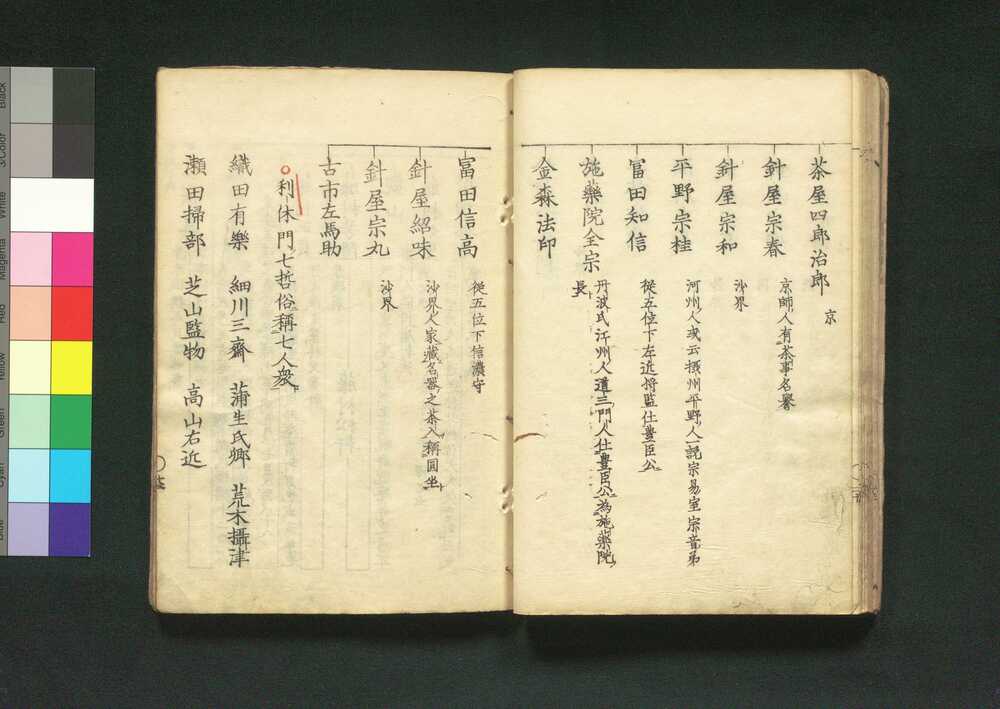 茶屋四郎治郎 京
針屋宗春 京師人有茶事名譽
針屋宗和 沙界
平野宗桂 河州人或云摂州平野人一説宗易室宗音弟
冨田知信 從五位下左近将監仕豊臣公
施藥院全宗 丹波氏江州人道三門人仕豊臣公為施藥院
長
金森法印
冨田信高 從五位下信濃守
針屋紹味 沙界人家藏名器之茶入稱圓坐
針屋宗丸 沙界
古市左馬助
利休門七哲俗稱七人衆
織田有樂 細川三齋 蒲生氏郷 荒木攝津
瀬田掃部 芝山監物 高山右近
Black
3/Color
White
Magenta
Red
Yellow
Green
Cyan
Blue